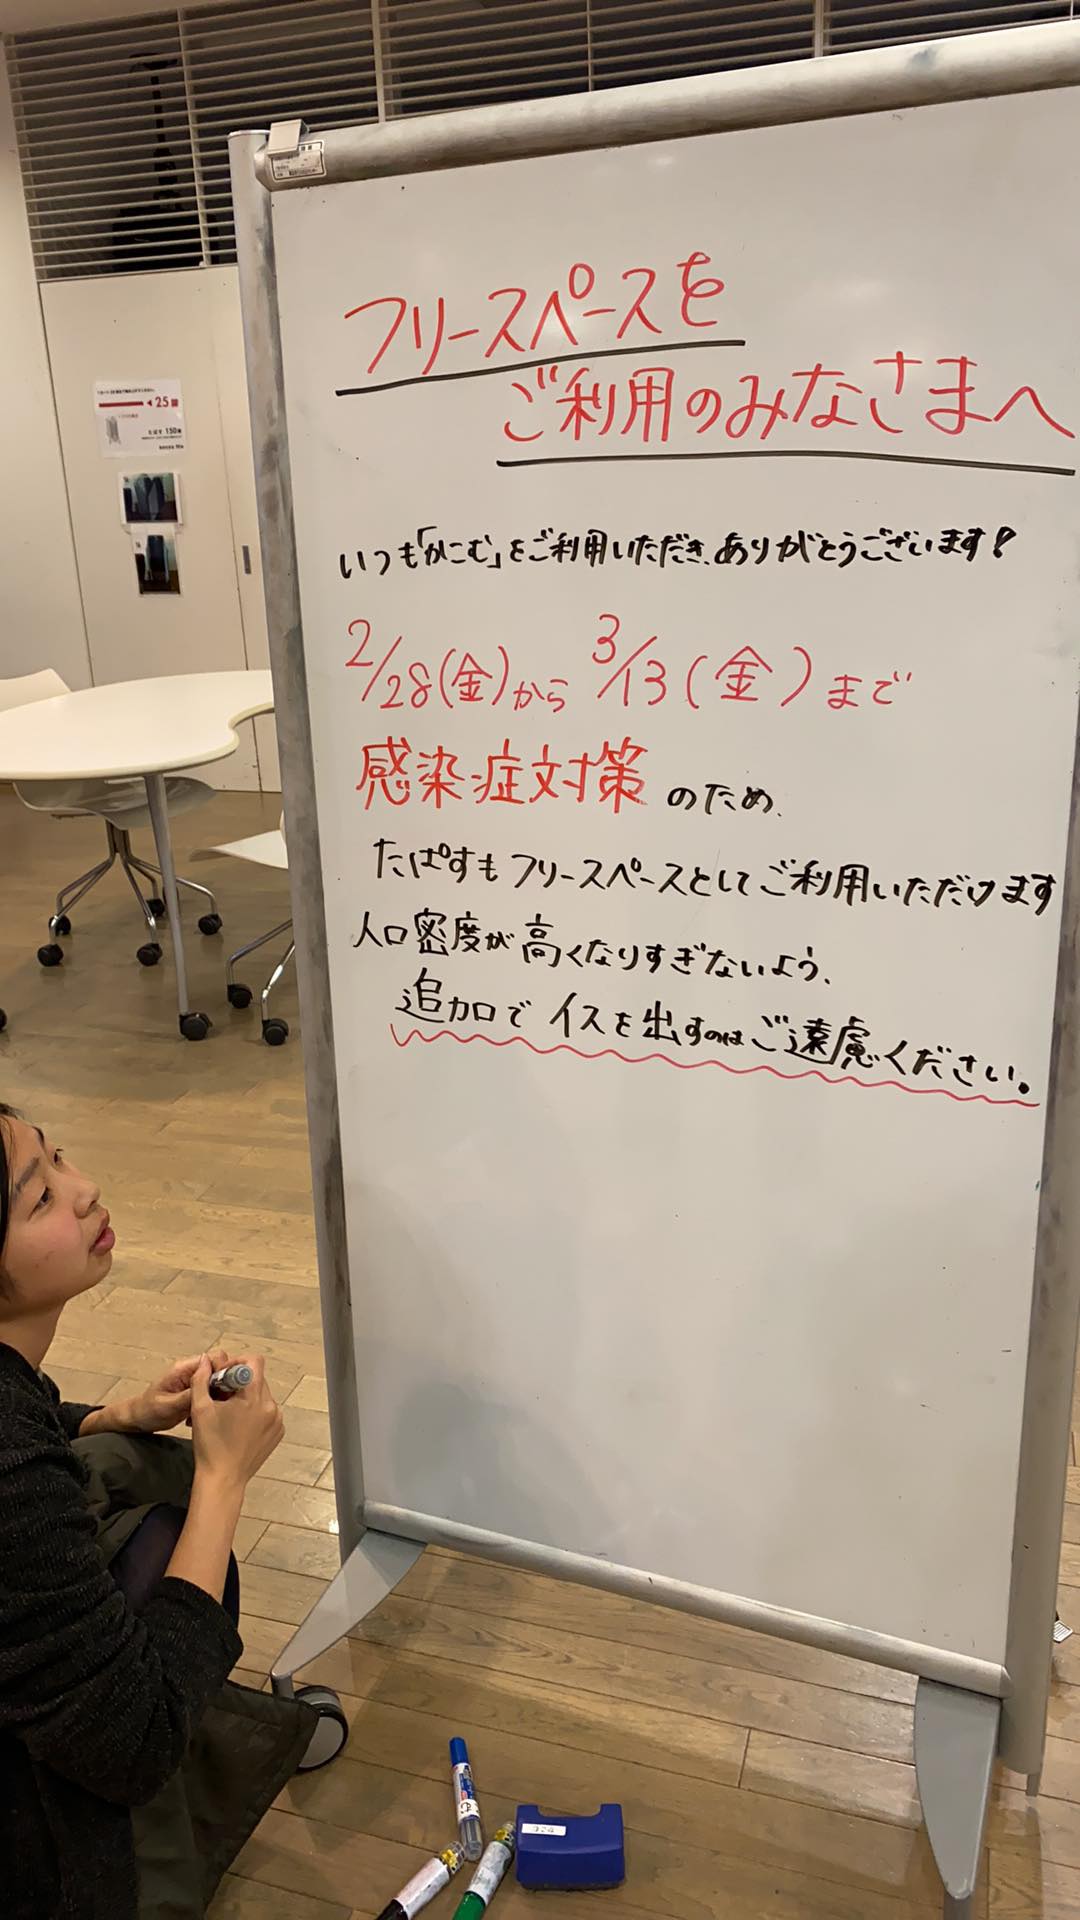 フリースペースを
ご利用のみなさまへ
いつも「かこむ」をご利用いただき、ありがとうございます!
2/28(金)から 3/13(金)まで
感染症対策のため、
たぱすもフリースペースとしてご利用いただけます
人口密度が高くなりすぎないよう、
追加でイスを出すのはご遠慮ください。
25
150